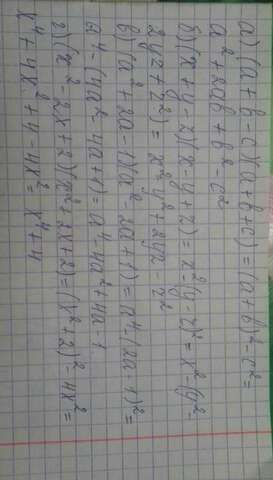 а) (a + b - c)(a + b + c) = (a + b)² - c² =
a² + 2ab + b² - c²
б) (x + y - z)(x - y + z) = x² - (y - z)² = x² - (y² -
2yz + z²) = x² - y² + 2yz - z²
в) (a² + 2a - 1)(a² - 2a + 1) = a⁴ - (2a - 1)² =
a⁴ - (4a² - 4a + 1) = a⁴ - 4a² + 4a - 1
г) (x² - 2x + 2)(x² + 2x + 2) = (x² + 2)² - 4x² =
x⁴ + 4x² + 4 - 4x² = x⁴ + 4